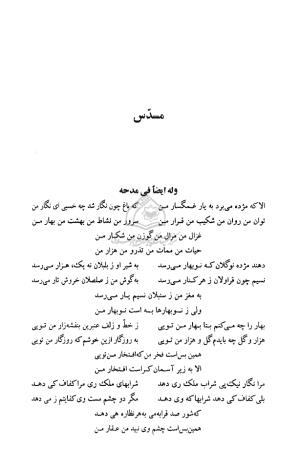 مسدّس
وله ایضاً فی مدحه
الا که مژده می‌برد به یار غمگسار من که باغ چون نگار شد چه خسبی ای نگار من
توان من روان من شکیب من قرار من سرور من نشاط من بهشت من بهار من
غزال من مرال من گوزن من شکار من
حیات من ممات من تذرو من هزار من
دهند مژده نوگلان که نوبهار می‌رسد به شیر او ز بلبلان نه یک، هزار می‌رسد
نسیم چون قراولان ز هر کنار می‌رسد به گوش من ز صلصلان خروش تار می‌رسد
به مغز من ز سنبلان نسیم یار می‌رسد
ولی ز نوبهارها به است نوبهار من
بهار را چه می‌کنم بتا بهار من تویی ز خط و زلف عنبرین بنفشه‌زار من تویی
هزار و گل چه بایدم گل و هزار من تویی به روزگار ازین خوشم که روزگار من تویی
همین بس‌است فخر من که افتخار من تویی
الا به زیر آسمان کراست افتخار من
مرا نگار نیک‌پی شراب ملک ری دهد شرابهای ملک ری مرا کفاف کی دهد
بلی کفاف کی دهد شرابها که وی دهد مگر دو چشم مست وی کفایتم ز می دهد
که‌شور صد قرابه می به هر نظاره هی دهد
همین‌بس‌است چشم وی نبید من عقار من